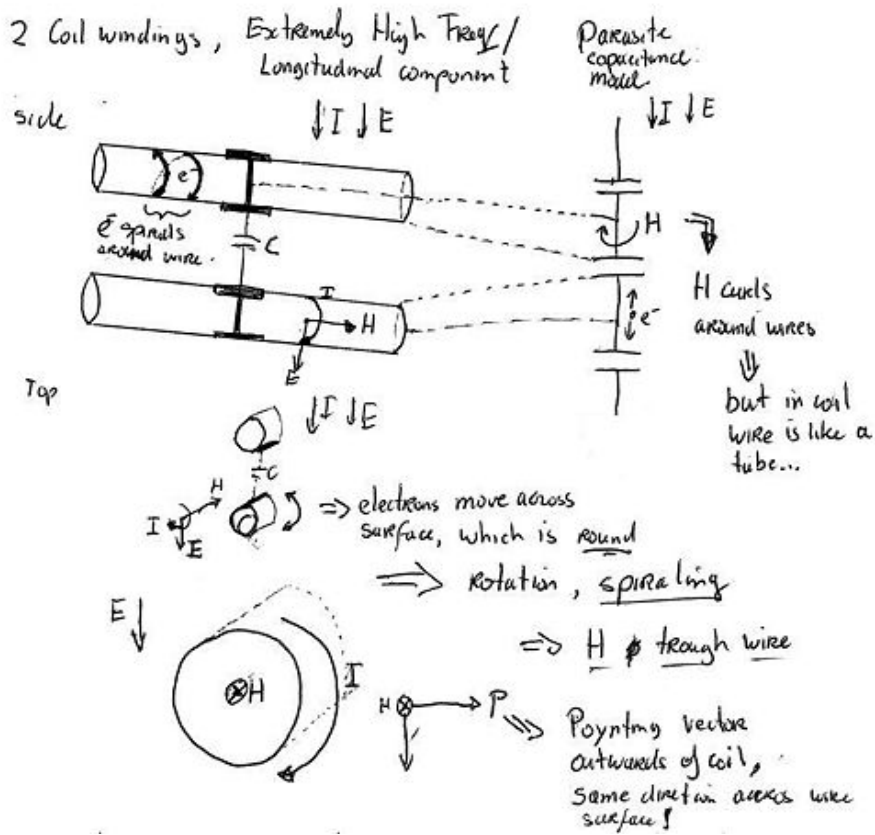 2 Coil windings, Extremely High Freq/
Longitudinal component
Parasite
capacitance
model
side
↓I ↓E
↓I ↓E
e⁻
e⁻ spirals
around wire.
C
I
H
E
H
e⁻
H curls
around wires
⇓
but in coil
wire is like a
tube...
Top
↓I ↓E
C
H
I
E
⇒ electrons move across
surface, which is round
⇒ rotation, spiraling
⇒ H trough wire
E ↓
⊗H
I
H ⊗ → P
⇒ Poynting vector
outwards of coil,
same direction across wire
surface!